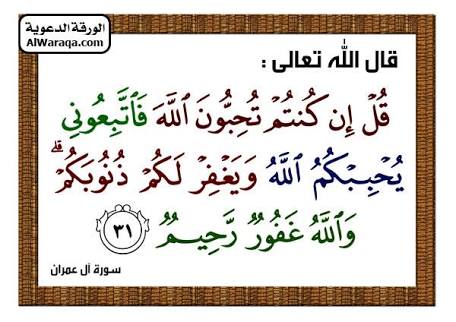 الورقة الدعوية
AlWaraqa.com
قال الله تعالى :
قُلۡ إِن كُنتُمۡ تُحِبُّونَ ٱللَّهَ فَٱتَّبِعُونِي
يُحۡبِبۡكُمُ ٱللَّهُ وَيَغۡفِرۡ لَكُمۡ ذُنُوبَكُمۡۗ
وَٱللَّهُ غَفُورٞ رَّحِيمٞ ٣١
سورة آل عمران